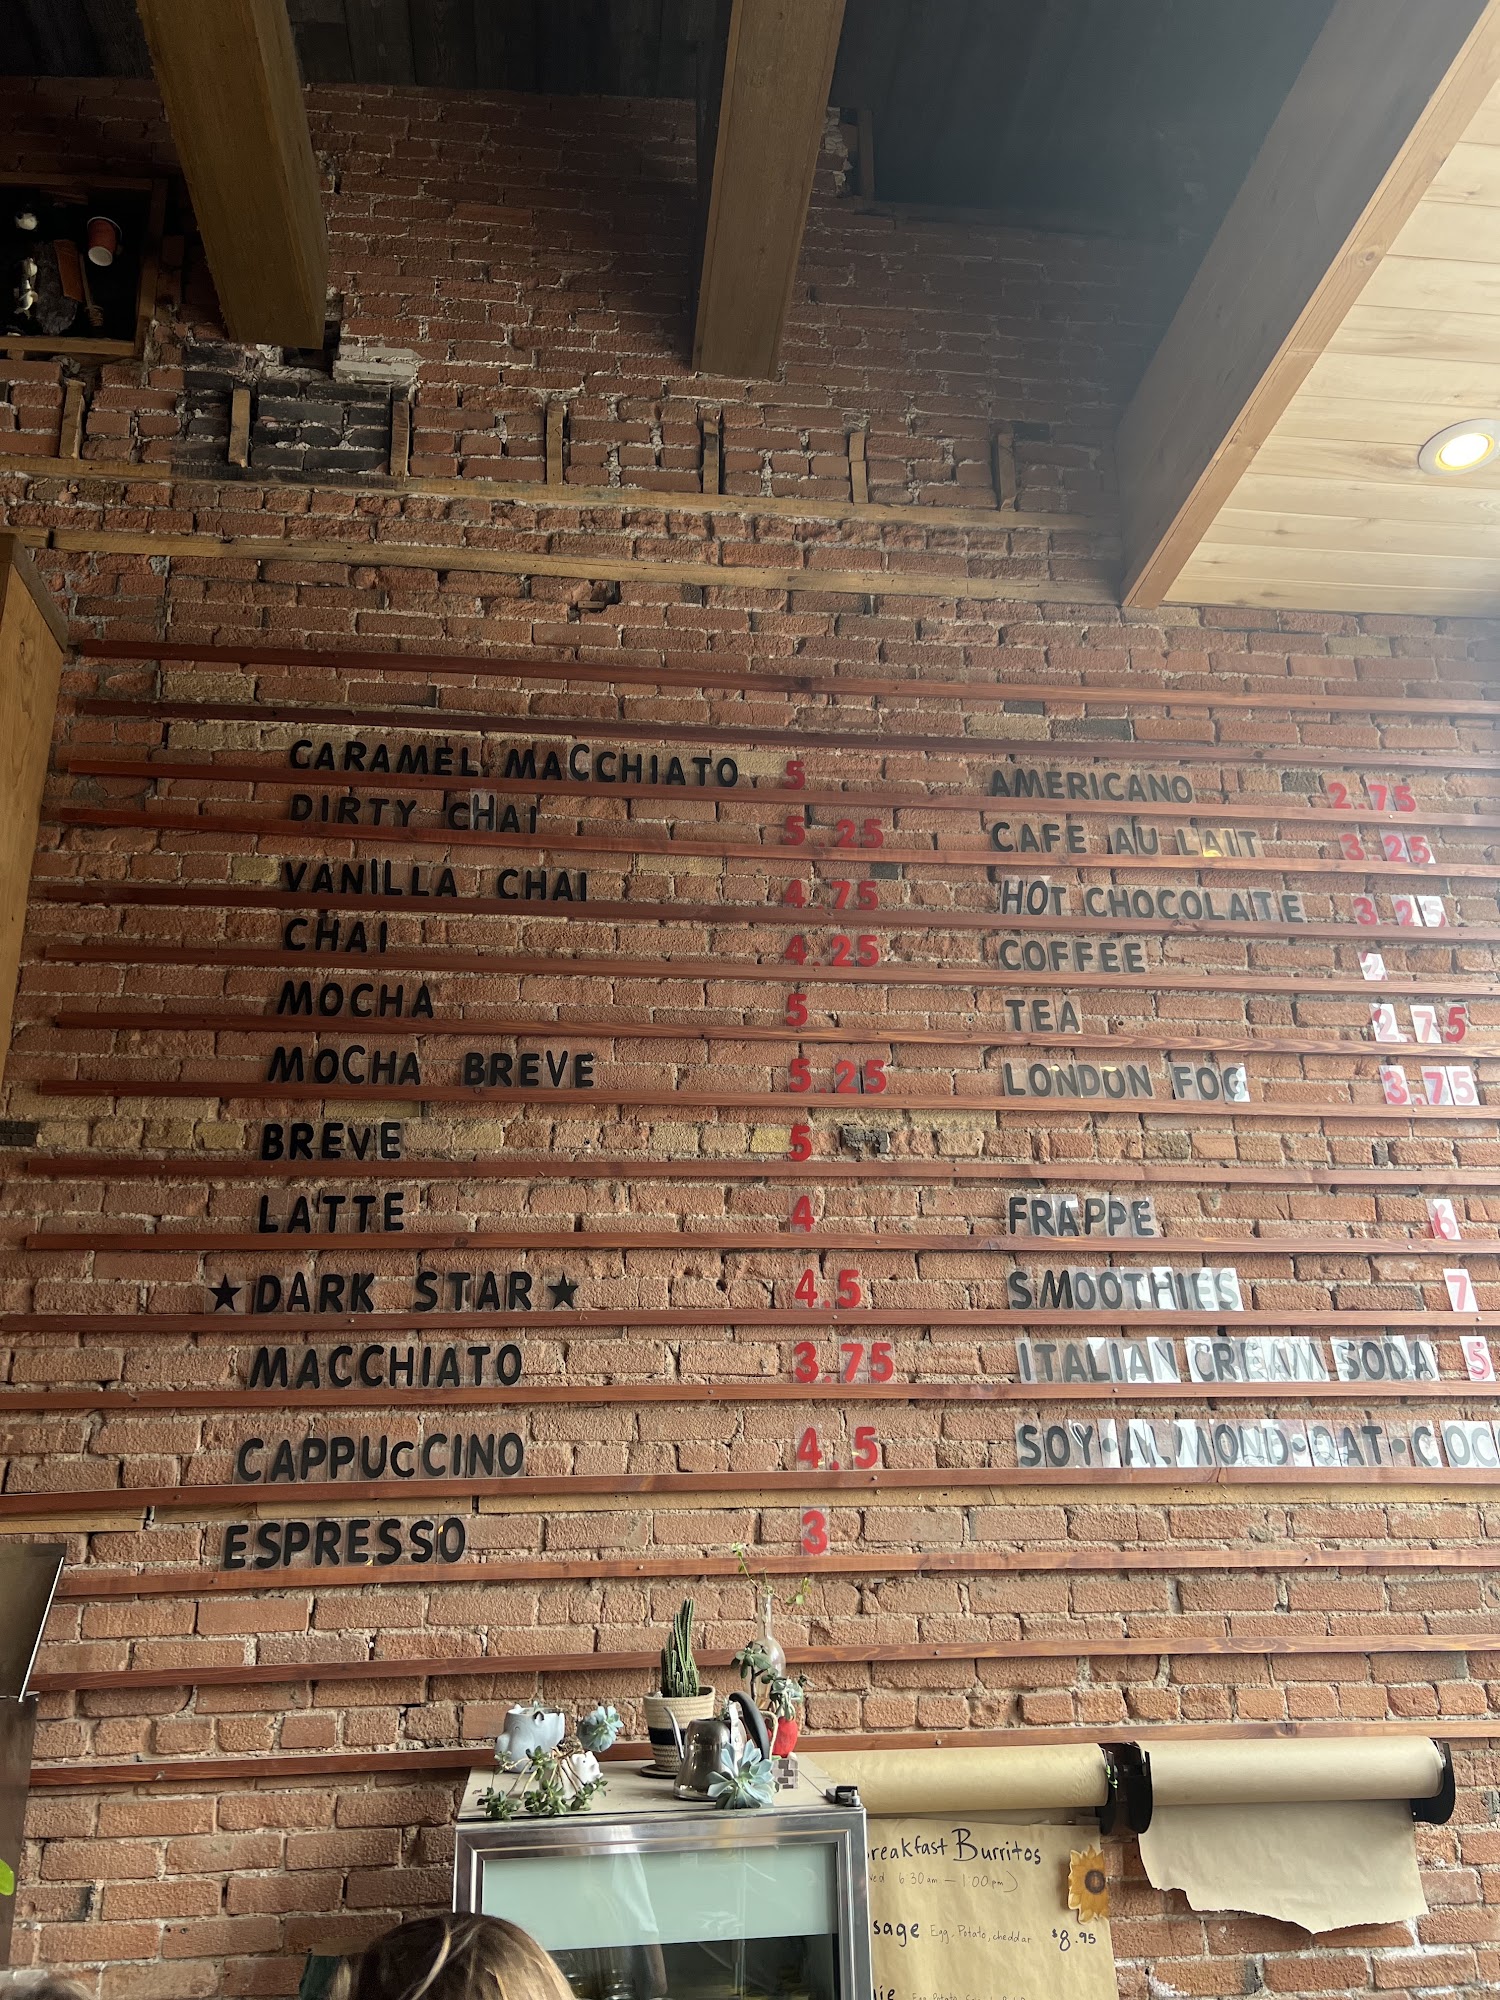 CARAMEL MACCHIATO 5
DIRTY CHAI 5.25
VANILLA CHAI 4.75
CHAI 4.25
MOCHA 5
MOCHA BREVE 5.25
BREVE 5
LATTE 4
★DARK STAR★ 4.5
MACCHIATO 3.75
CAPPUCCINO 4.5
ESPRESSO 3
AMERICANO 2.75
CAFE AU LAIT 3.25
HOT CHOCOLATE 3.25
COFFEE 2
TEA 2.75
LONDON FOG 3.75
FRAPPE 6
SMOOTHIES 7
ITALIAN CREAM SODA 5
SOY•ALMOND•OAT•COC
reakfast Burritos
ved 6:30am — 1:00pm)
sage Egg, Potato, cheddar $8.95
Egg, Potato,